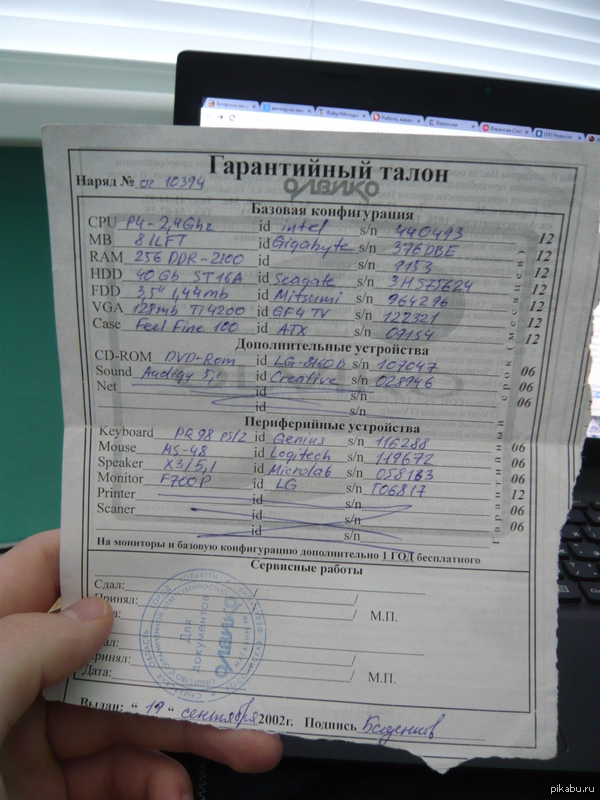 Гарантийный талон
Наряд № ог 10394
ОЛВИКО
Базовая конфигурация
CPU P4-2,4Ghz id intel s/n 440493 12
MB 8ILFT id Gigabyte s/n 376DBE 12
RAM 256 DDR-2100 id s/n 9153 12
HDD 40Gb ST16A id Seagate s/n 3H575624 12
FDD 3,5" 1,44mb id Mitsumi s/n 964296 12
VGA 128mb Ti4200 id GF4 TV s/n 122321 12
Case Feel Fine 100 id ATX s/n 07154 12
Дополнительные устройства
CD-ROM DVD-Rom id LG-8160B s/n 107047 06
Sound Audigy 5,1 id Creative s/n 028946 06
Net id s/n 06
id s/n
Периферийные устройства
Keyboard PR98 PS/2 id Genius s/n 116288 06
Mouse MS-48 id Logitech s/n 119672 06
Speaker X3/5,1 id Microlab s/n 058183 06
Monitor F700P id LG s/n T06817 12
Printer id s/n 06
Scaner id s/n 06
id s/n
На мониторы и базовую конфигурацию дополнительно 1 ГОД бесплатного
Сервисные работы
Сдал:
Принял:
М.П.
Дата:
М.П.
Для документов
ОЛВИКО
Выдан: " 19 " сентября 2002г. Подпись
pikabu.ru